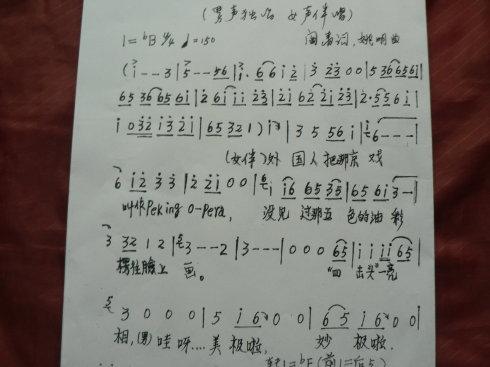 (男声独唱 女声伴唱)
1=ᵇB 4/4 ♩=150 阎肃词,姚明曲
(i - - - 3 | 5 - - - 56 | i. 6 6 i 2 | 3 23 0 0 | 5 36 65 6i |
65 36 65 6i | 2 6i ii 23 | 2i 62 2i 23 | 2·5 5 6 i |
i 0 32 i3 2i | 65 32 1 ) i | 3 5 56 i | 6 - - - |
(女伴)外 国人把那京 戏
6 i2 3 3 | 2 2i 0 0 | i i6 65 35 | 65 6i 3 - |
叫作Peking O-Pera, 没见 过那五 色的油 彩
3 32 1 2 | 3 - - - 2 | 3 - - - | 0 0 0 65 | i i ii 65 |
楞往脸上 画。 "四 击头"一亮
3 0 0 0 0 | 5 i 6 0 0 | 6 5 i 6 0 0 |
相,(男)哇呀....美极啦, 妙 极啦.
转1=ᵇE(前1=后5)